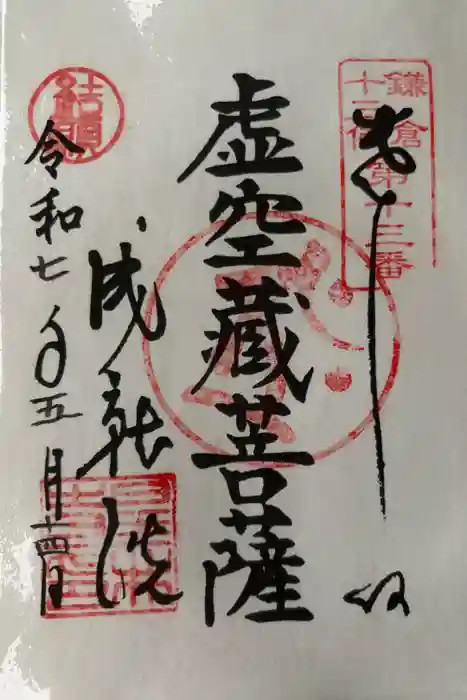 鎌倉
十三仏
第十三番
奉拝
虚空藏菩薩
成就院
結願
令和七年五月十四日